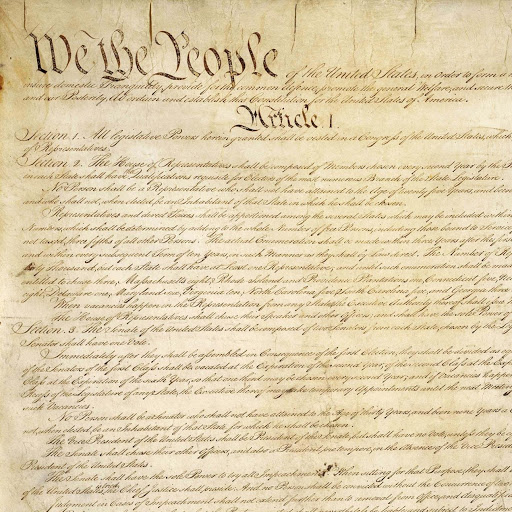 We the People of the United States, in Order to form a
insure domestic Tranquility, provide for the common defence, promote the general Welfare, and secure
and our Posterity, do ordain and establish this Constitution for the United States of America.
Article. I.
Section. 1. All legislative Powers herein granted shall be vested in a Congress of the United States, which
of Representatives.
Section. 2. The House of Representatives shall be composed of Members chosen every second Year by the
in each State shall have Qualifications requisite for Electors of the most numerous Branch of the State Legislature.
No Person shall be a Representative who shall not have attained to the Age of twenty five Years, and
and who shall not, when elected, be an Inhabitant of that State in which he shall be chosen.
Representatives and direct Taxes shall be apportioned among the several States which may be included within
Numbers, which shall be determined by adding to the whole Number of free Persons, including those bound to Service
not taxed, three fifths of all other Persons. The actual Enumeration shall be made within three Years after the
and within every subsequent Term of ten Years, in such Manner as they shall by Law direct. The Number of
thirty Thousand, but each State shall have at Least one Representative; and until such enumeration shall be
entitled to chuse three, Massachusetts eight, Rhode-Island and Providence Plantations one, Connecticut five,
eight, Delaware one, Maryland six, Virginia ten, North Carolina five, South Carolina five, and Georgia three.
When vacancies happen in the Representation from any State, the Executive Authority thereof shall
The House of Representatives shall chuse their Speaker and other Officers; and shall have the sole Power of
Section. 3. The Senate of the United States shall be composed of two Senators from each State, chosen by the
Senator shall have one Vote.
Immediately after they shall be assembled in Consequence of the first Election, they shall be divided as
of the Senators of the first Class shall be vacated at the Expiration of the second Year, of the second Class at the
Class at the Expiration of the sixth Year, so that one third may be chosen every second Year; and if Vacancies happen
Recess of the Legislature of any State, the Executive thereof may make temporary Appointments until the next Meeting
such Vacancies.
No Person shall be a Senator who shall not have attained to the Age of thirty Years, and been nine Years a
not, when elected, be an Inhabitant of that State for which he shall be chosen.
The Vice President of the United States shall be President of the Senate, but shall have no Vote, unless they be
The Senate shall chuse their other Officers, and also a President pro tempore, in the Absence of the Vice
President of the United States.
The Senate shall have the sole Power to try all Impeachments. When sitting for that Purpose, they shall
of the United States the Chief Justice shall preside: And no Person shall be convicted without the Concurrence of
Judgment in Cases of Impeachment shall not extend further than to removal from Office, and